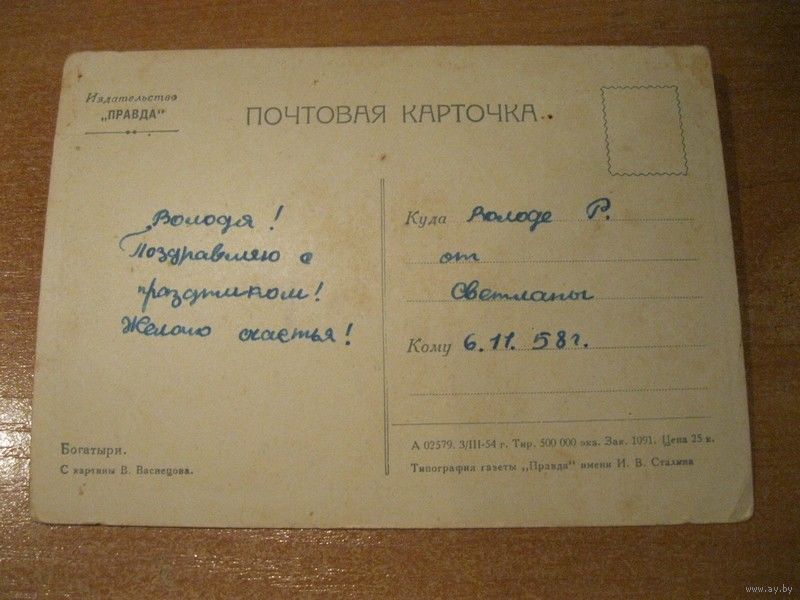 Издательство
„ПРАВДА"
ПОЧТОВАЯ КАРТОЧКА
Володя!
Поздравляю с
праздником!
Желаю счастья!
Куда Володе Р.
от
Светланы
Кому 6.11.58г.
Богатыри.
С картины В. Васнецова.
А 02579. 3/III-54 г. Тир. 500 000 экз. Зак. 1091. Цена 25 к.
Типография газеты „Правда" имени И. В. Сталина
www.ay.by